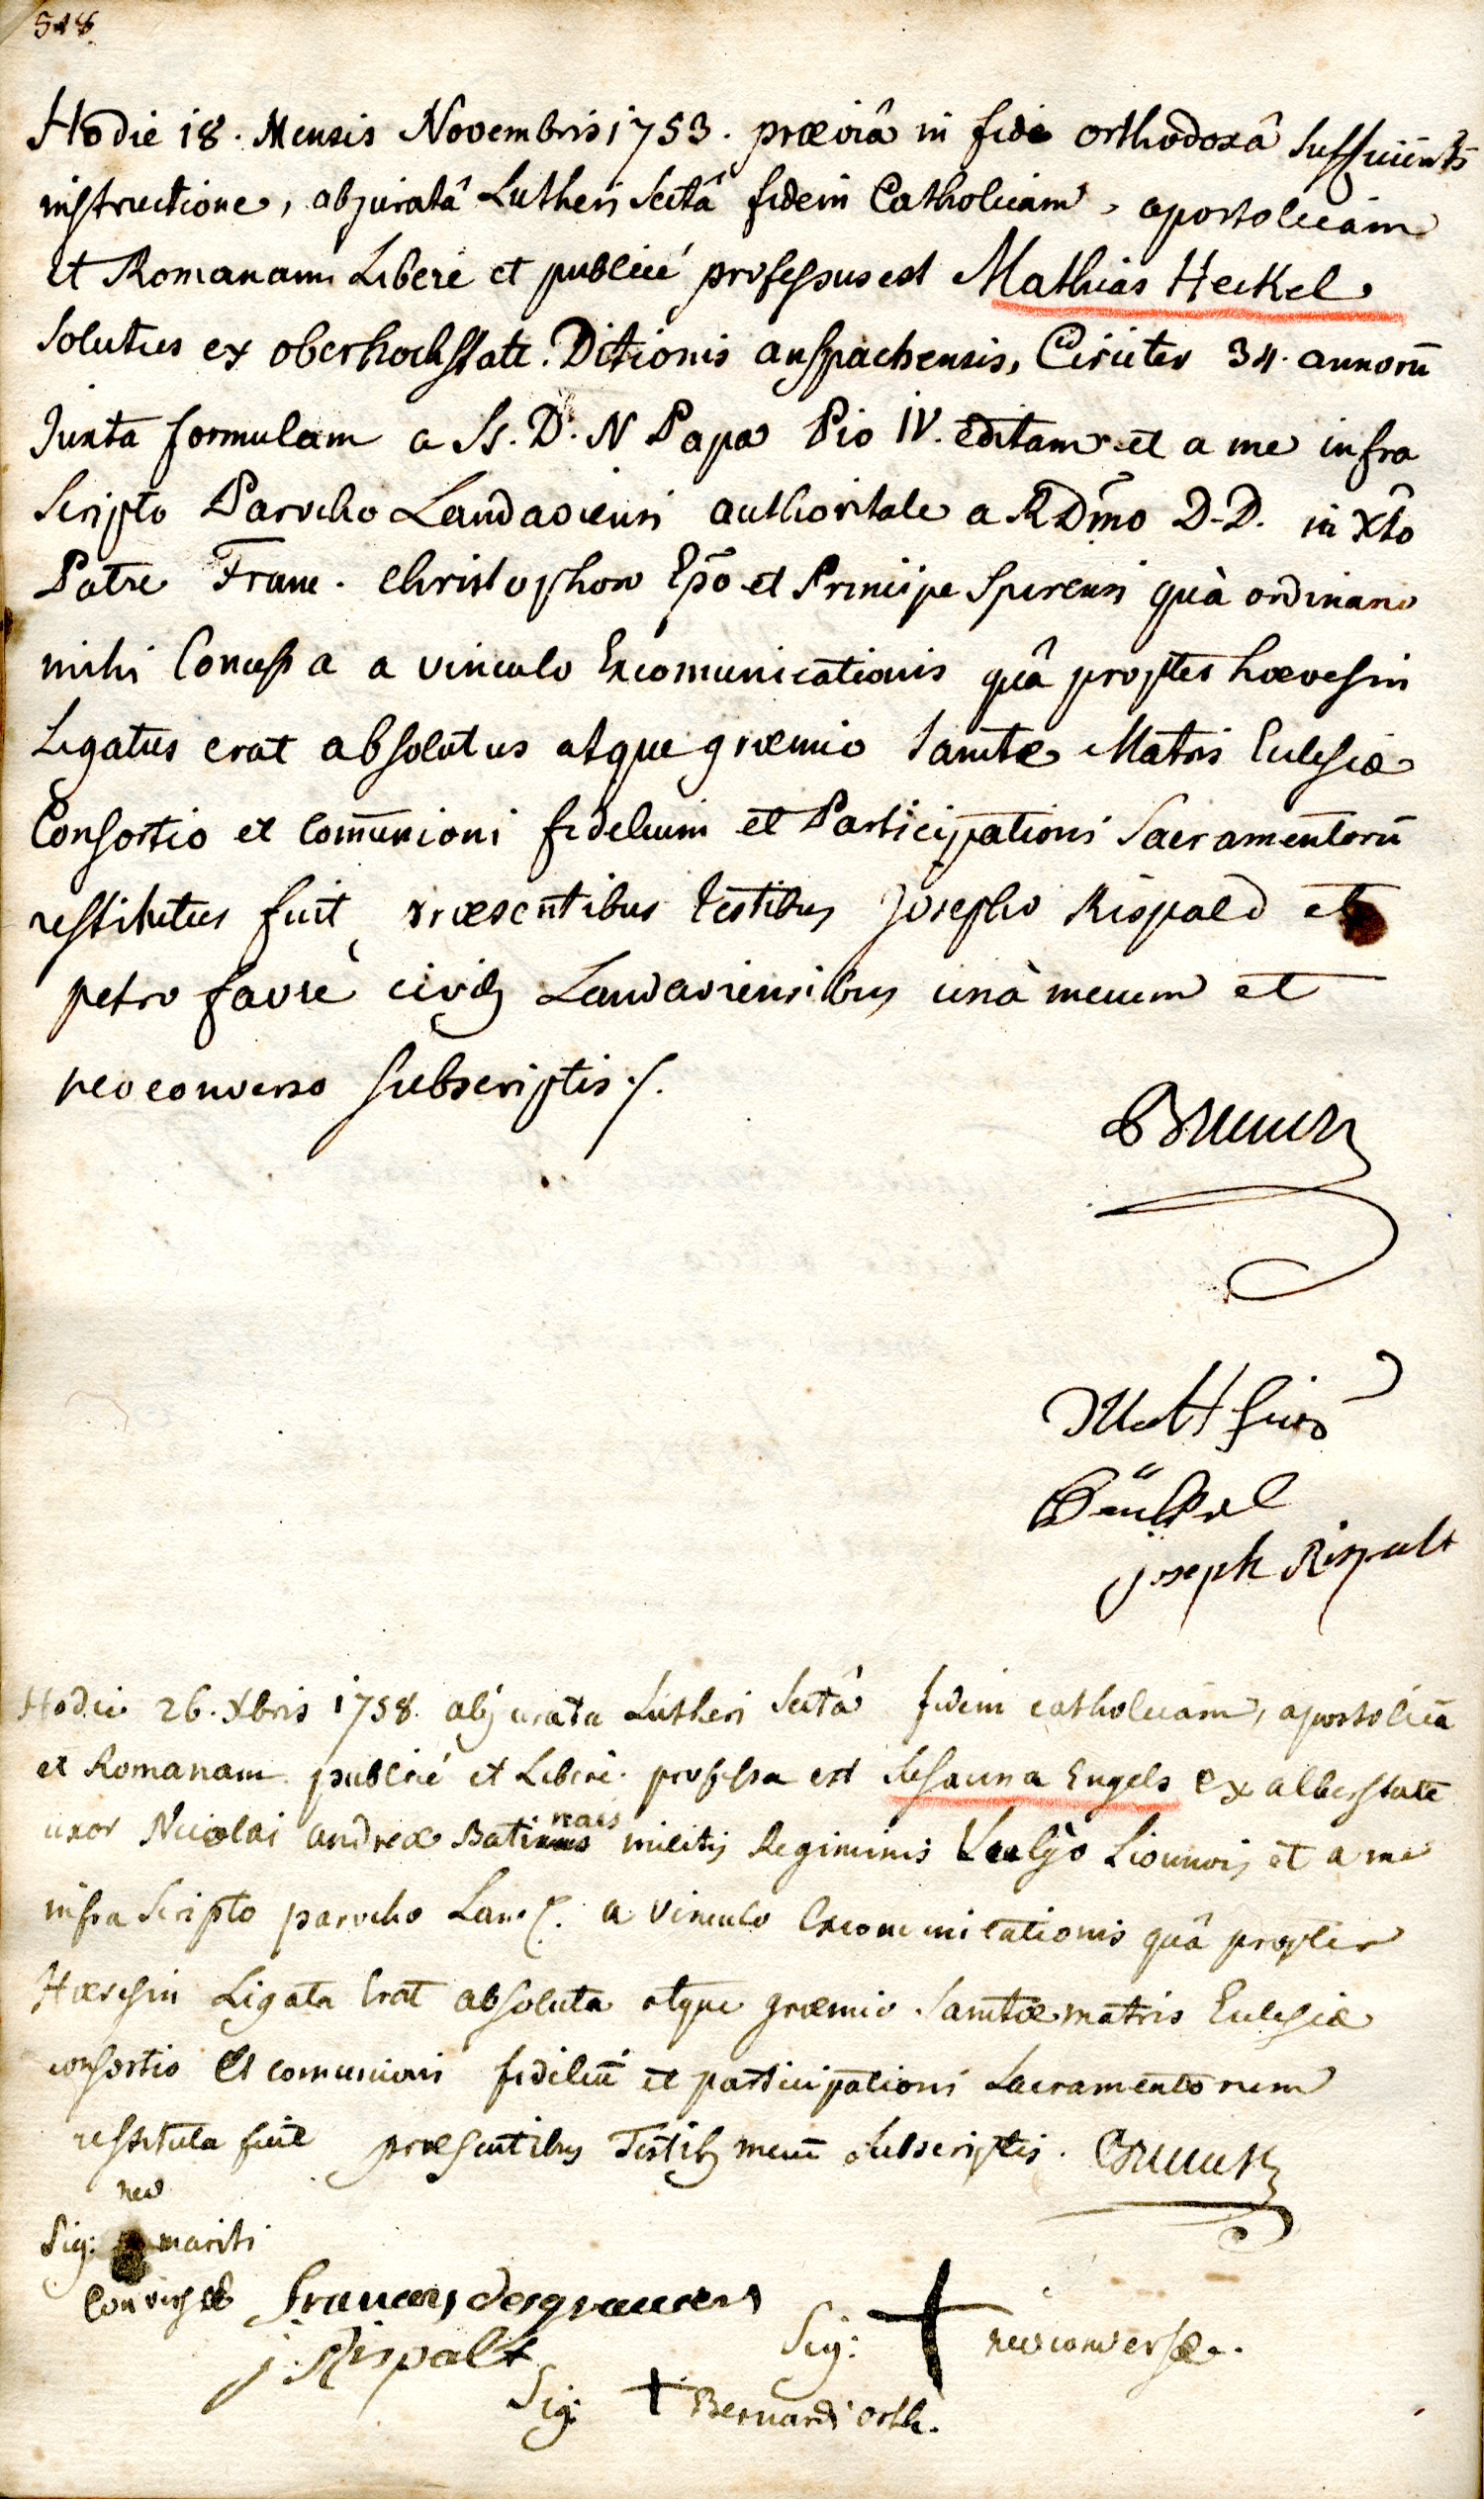 548.
Hodie 18. Mensis Novembris 1753. præviâ in fide orthodoxâ sufficienti
instructione, abjuratâ Lutheri Sectâ fidem Catholicam, apostolicam
et Romanam Liberè et publicé professus est Mathias Heckel
solutus ex oberhochstatt. Ditionis anspachensis, Circiter 34. annorū
Juxta formulam a Ss. D. N Papa Pio IV. editam et a me infra
scripto Parocho Landaviensi authoritate a RDmo D-D. in Xto
Patre Franc. Christophoro Epo et Principe Spirensi quà ordinario
mihi Concessa a vinculo Excomunicationis quâ propter hæresin
Ligatus erat absolutus atque græmio Sanctæ Matris Ecclesiæ
Consortio et comūnioni fidelium et Participationi Sacramentorū
restitutus fuit, præsentibus testibus Josepho Rispald et
petro favre civibs Landaviensibus unà mecum et
neoconverso subscriptis ./.
Brunck
Matthias
Häckel
joseph Rispalt
Hodie 26. Xbris 1758. abjurata Lutheri Sectâ fidem catholicam, apostolicā
et Romanam publicé et Liberè professa est Susanna Engels ex alberstatt
uxor Nicolai andreæ Bati
nais
militis Regiminis Lionnois et a me
infra Scripto parocho Lan. a vinculo Excommunicationis quâ propter
Hæresin Ligata Erat absoluta atque græmio Sanctæ matris Ecclesiæ
consortio Et comunioni fideliū et participationi Sacramentorum
restituta fuit præsentibus Testibs mecū Subscriptis. Brunck
neo
Sig: mariti
Conversæ francois desgrancers
j. Rispalt
Sig: + neo conversæ.
Sig: + Bernardi orth.